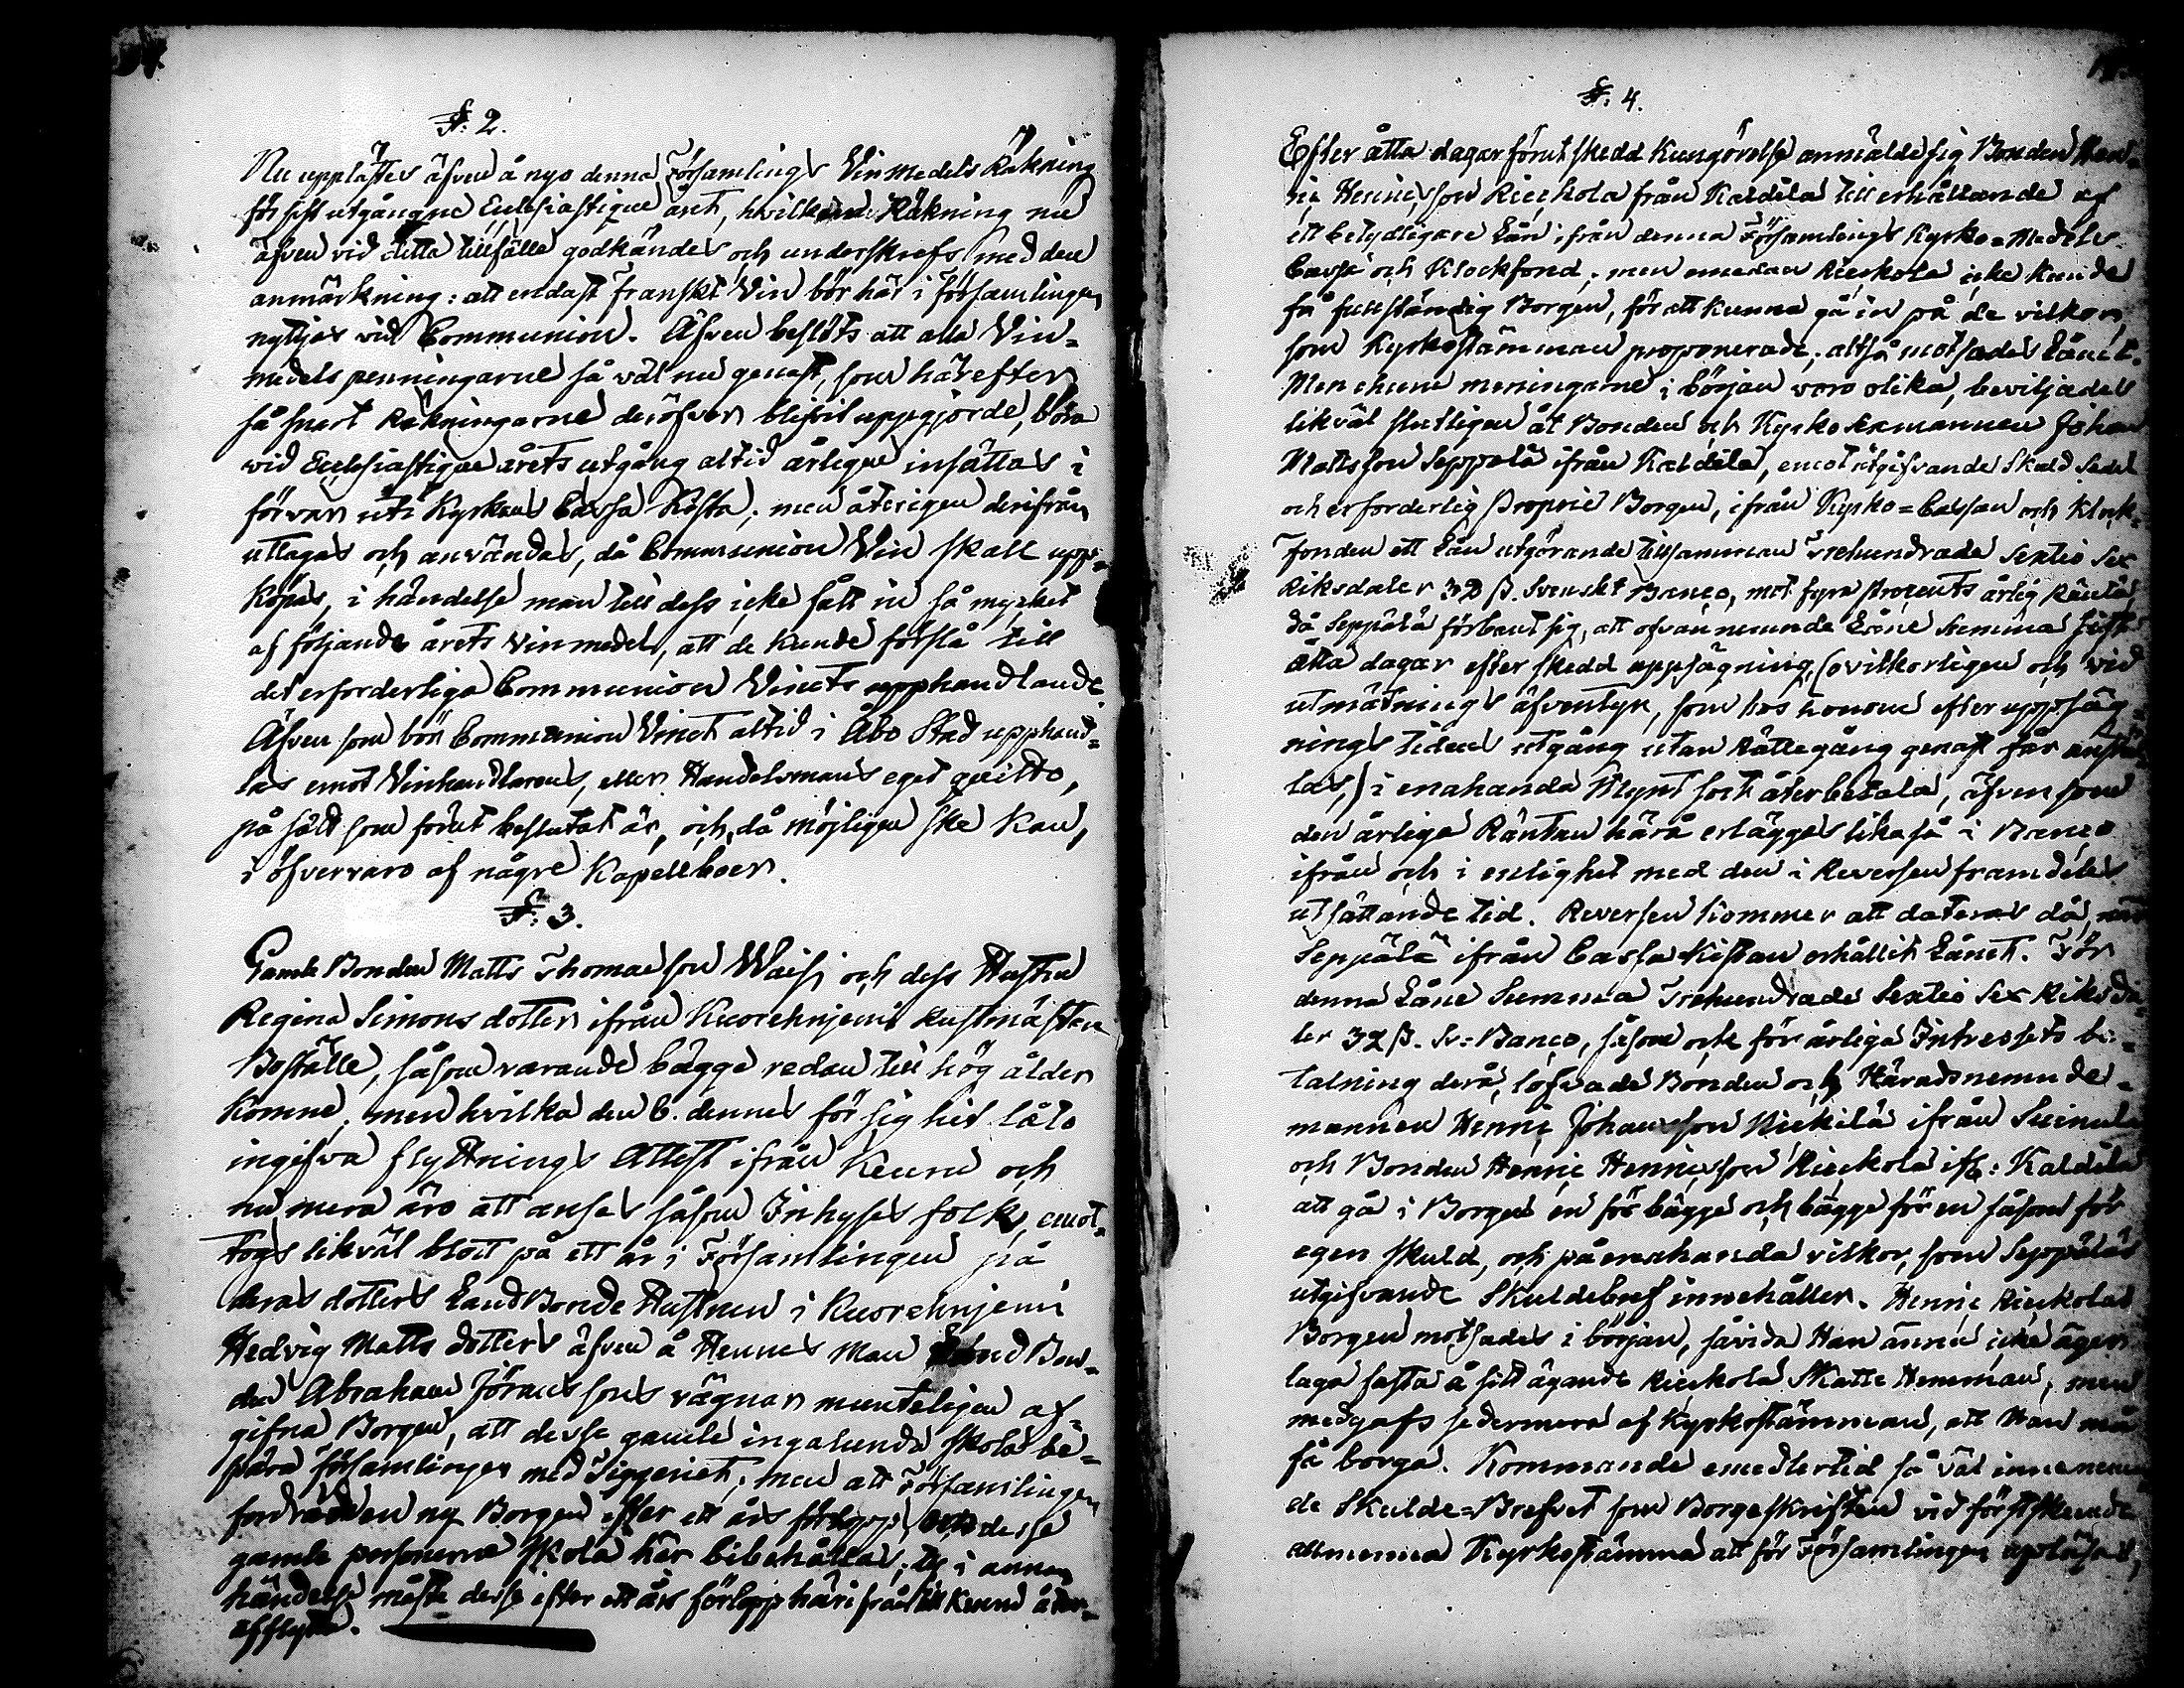 §: 2.
Nu upplästes äfven å nyo denna Församlings Vinmedels Räkning
för sist utgångne Ecclesiastique året, hvilken Räkning nu
äfven vid detta tillfälle godkändes och underskrefs med den
anmärkning: att endast Franskt Vin bör här i församlingen
nyttjas vid Communion. Äfven beslöts att alla Vin-
medels penningarne så väl nu genast, som härefter
så snart Räkningarne deröfver blifvit uppgjorde, böra
vid Ecclesiastique årets utgång altid årligen insättas i
förvar uti Kyrkans Cassa Kista; men återigen derifrån
uttagas och användas, då Communion Vin skall upp-
köpas, i händelse man till dess icke fått in så mycket
af följande årets Vinmedel, att de kunde förslå till
det erforderliga Communion Vinets upphandlande.
Äfven som bör Communion Vinet altid i Åbo Stad upphand-
las emot Vinhandlarens, eller Handelsmans eget quitto,
på sätt som förut beslutat är, och, då möjligen ske kan,
i öfvervaro af någre Kapellboer.
§: 3.
Gamle Bonden Matts Thomasson Waisi och dess Hustru
Regina Simons dotter ifrån Kuorehnjemi Rustmästare
Boställe, såsom varande bägge redan till hög ålder
komne, men hvilka den 6. dennes för sig hit låto
ingifva flyttnings Attest ifrån Keuru och
nu mera äro att anses såsom Inhyses folk, emot-
togs likväl blott på ett år i Församlingen på
deras dotters LandBonde Hustrun i Kuorehnjemi
Hedvig Matts dotters äfven å Hennes Man Land Bon-
den Abraham Jöransons vägnar munteligen af-
gifna Borgen, att desse gamle ingalunda skola be-
svära församlingen med Tiggeriet; men att Församlingen
fordrar en ny Borgen efter ett års förlopp, om desse
gamle personerne skola här bibehållas; ty i annan
händelse måste desse efter ett års förlopp härifrån till Keuru åter-
afflytta.
§: 4.
Efter åtta dagar förut skedd Kungörelse anmälde sig Bonden Hen-
ric Henricsson Rieckola från Kaldila till erhållande af
ett betydligare Lån ifrån denna Församlings Kyrko-Medels
Cassa och Klockfond; men emedan Rieckola icke kunde
få fullständig Borgen, för att kunna gå in på de vilkor,
som Kyrkostämman proponerade; altså motsades Lånet.
Men ehuru meningarne i början voro olika, beviljades
likväl slutligen åt Bonden och Kyrkosexmannen Johan
Mattsson Seppälä ifrån Kaldila, emot utgifvande Skuld Sedel
och erforderlig Proprie Borgen, ifrån Kyrko-Cassan och Klock-
fonden ett Lån utgörande tillsamman Trehundrade Sextio Sex
Riksdaler 32 ß. Svenskt Banco, mot fyra Procents årlig Ränta,
då Seppälä förband sig, att ofvannämnde Låne Summa sist
åtta dagar efter skedd uppsägning, (ovilkorligen och vid
utmätnings äfventyr, som hos honom efter uppsäg-
nings tidens utgång utan Rättegång genast får anstäl-
las,) i enahanda Mynt fort återbetala, äfven som
den årliga Räntan härå erlägges lika så i Banco
ifrån och i enlighet med den i Reversen framdeles
utsättande tid. Reversen kommer att dateras då, när
Seppälä ifrån Cassa Kistan erhållit Lånet. För
denna Låne Summa Trehundrade Sextio Sex Riksda-
ler 32 ß. Sv: Banco, såsom ock för årliga Intressets be-
talning derå, lofvade Bonden och Häradsnemnde-
mannen Henric Johansson Nickilä ifrån Suinula
och Bonden Henric Henricsson Rieckola ifr: Kaldila
att gå i Borgen en för bägge och bägge för en såsom för
egen skuld, och på enahanda vilkor, som Seppäläs
utgifvande Skuldebref innehåller. Henric Rieckolas
Borgen motsades i början, såvida Han ännu icke äger
laga fasta å sitt ägande Rieckola Skatte Hemman; men
medgafs sedermera af Kyrkostämman, att Han må
få borga. Kommande emedlertid så väl innenämn-
de Skulde-Brefvet som Borgeskriften vid först skeende
allmenna Kyrkostämma att för Församlingen upläsas,